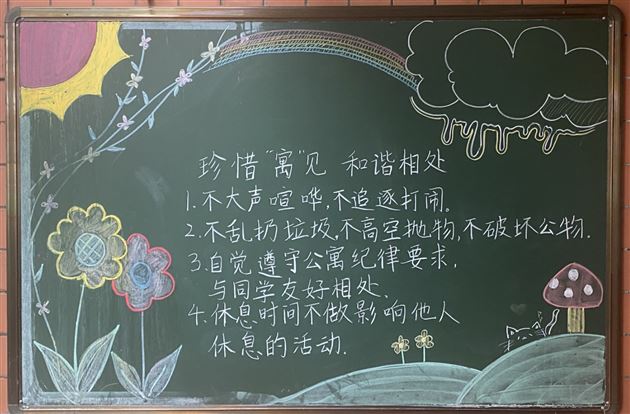 珍惜“寓”见 和谐相处
1.不大声喧哗,不追逐打闹。
2.不乱扔垃圾,不高空抛物,不破坏公物.
3.自觉遵守公寓纪律要求,
与同学友好相处.
4.休息时间不做影响他人
休息的活动.